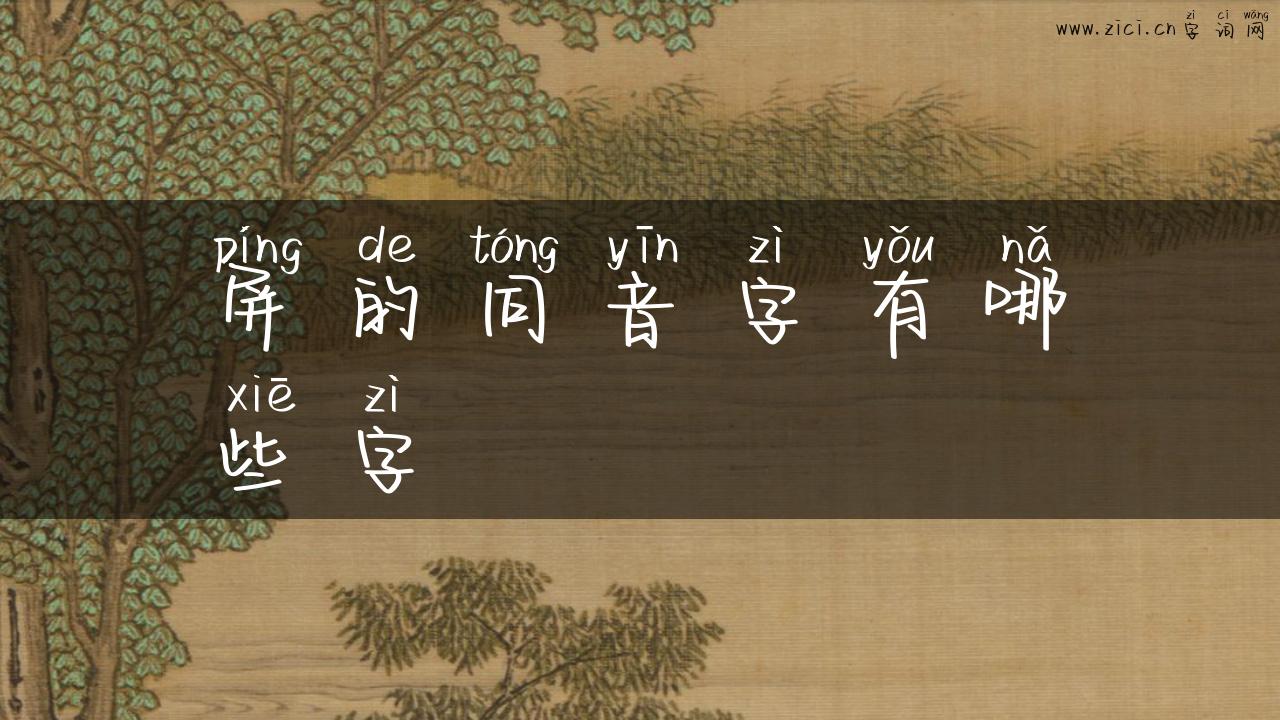 zì cí wǎng
www.zici.cn 字词网
píng de tóng yīn zì yǒu nǎ
屏的同音字有哪
xiē zì
些字